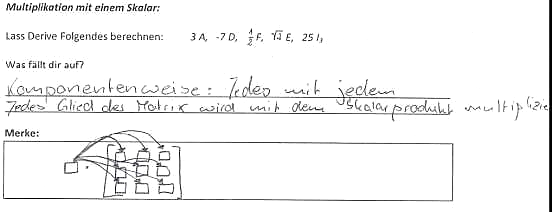 Multiplikation mit einem Skalar:
Lass Derive Folgendes berechnen: 3 A, -7 D, ½ F, √4 E, 25 I₃
Was fällt dir auf?
Komponentenweise: Jedes mit jedem
Jedes Glied des Matrix wird mit dem Skalarprodukt multiplizie
Merke: